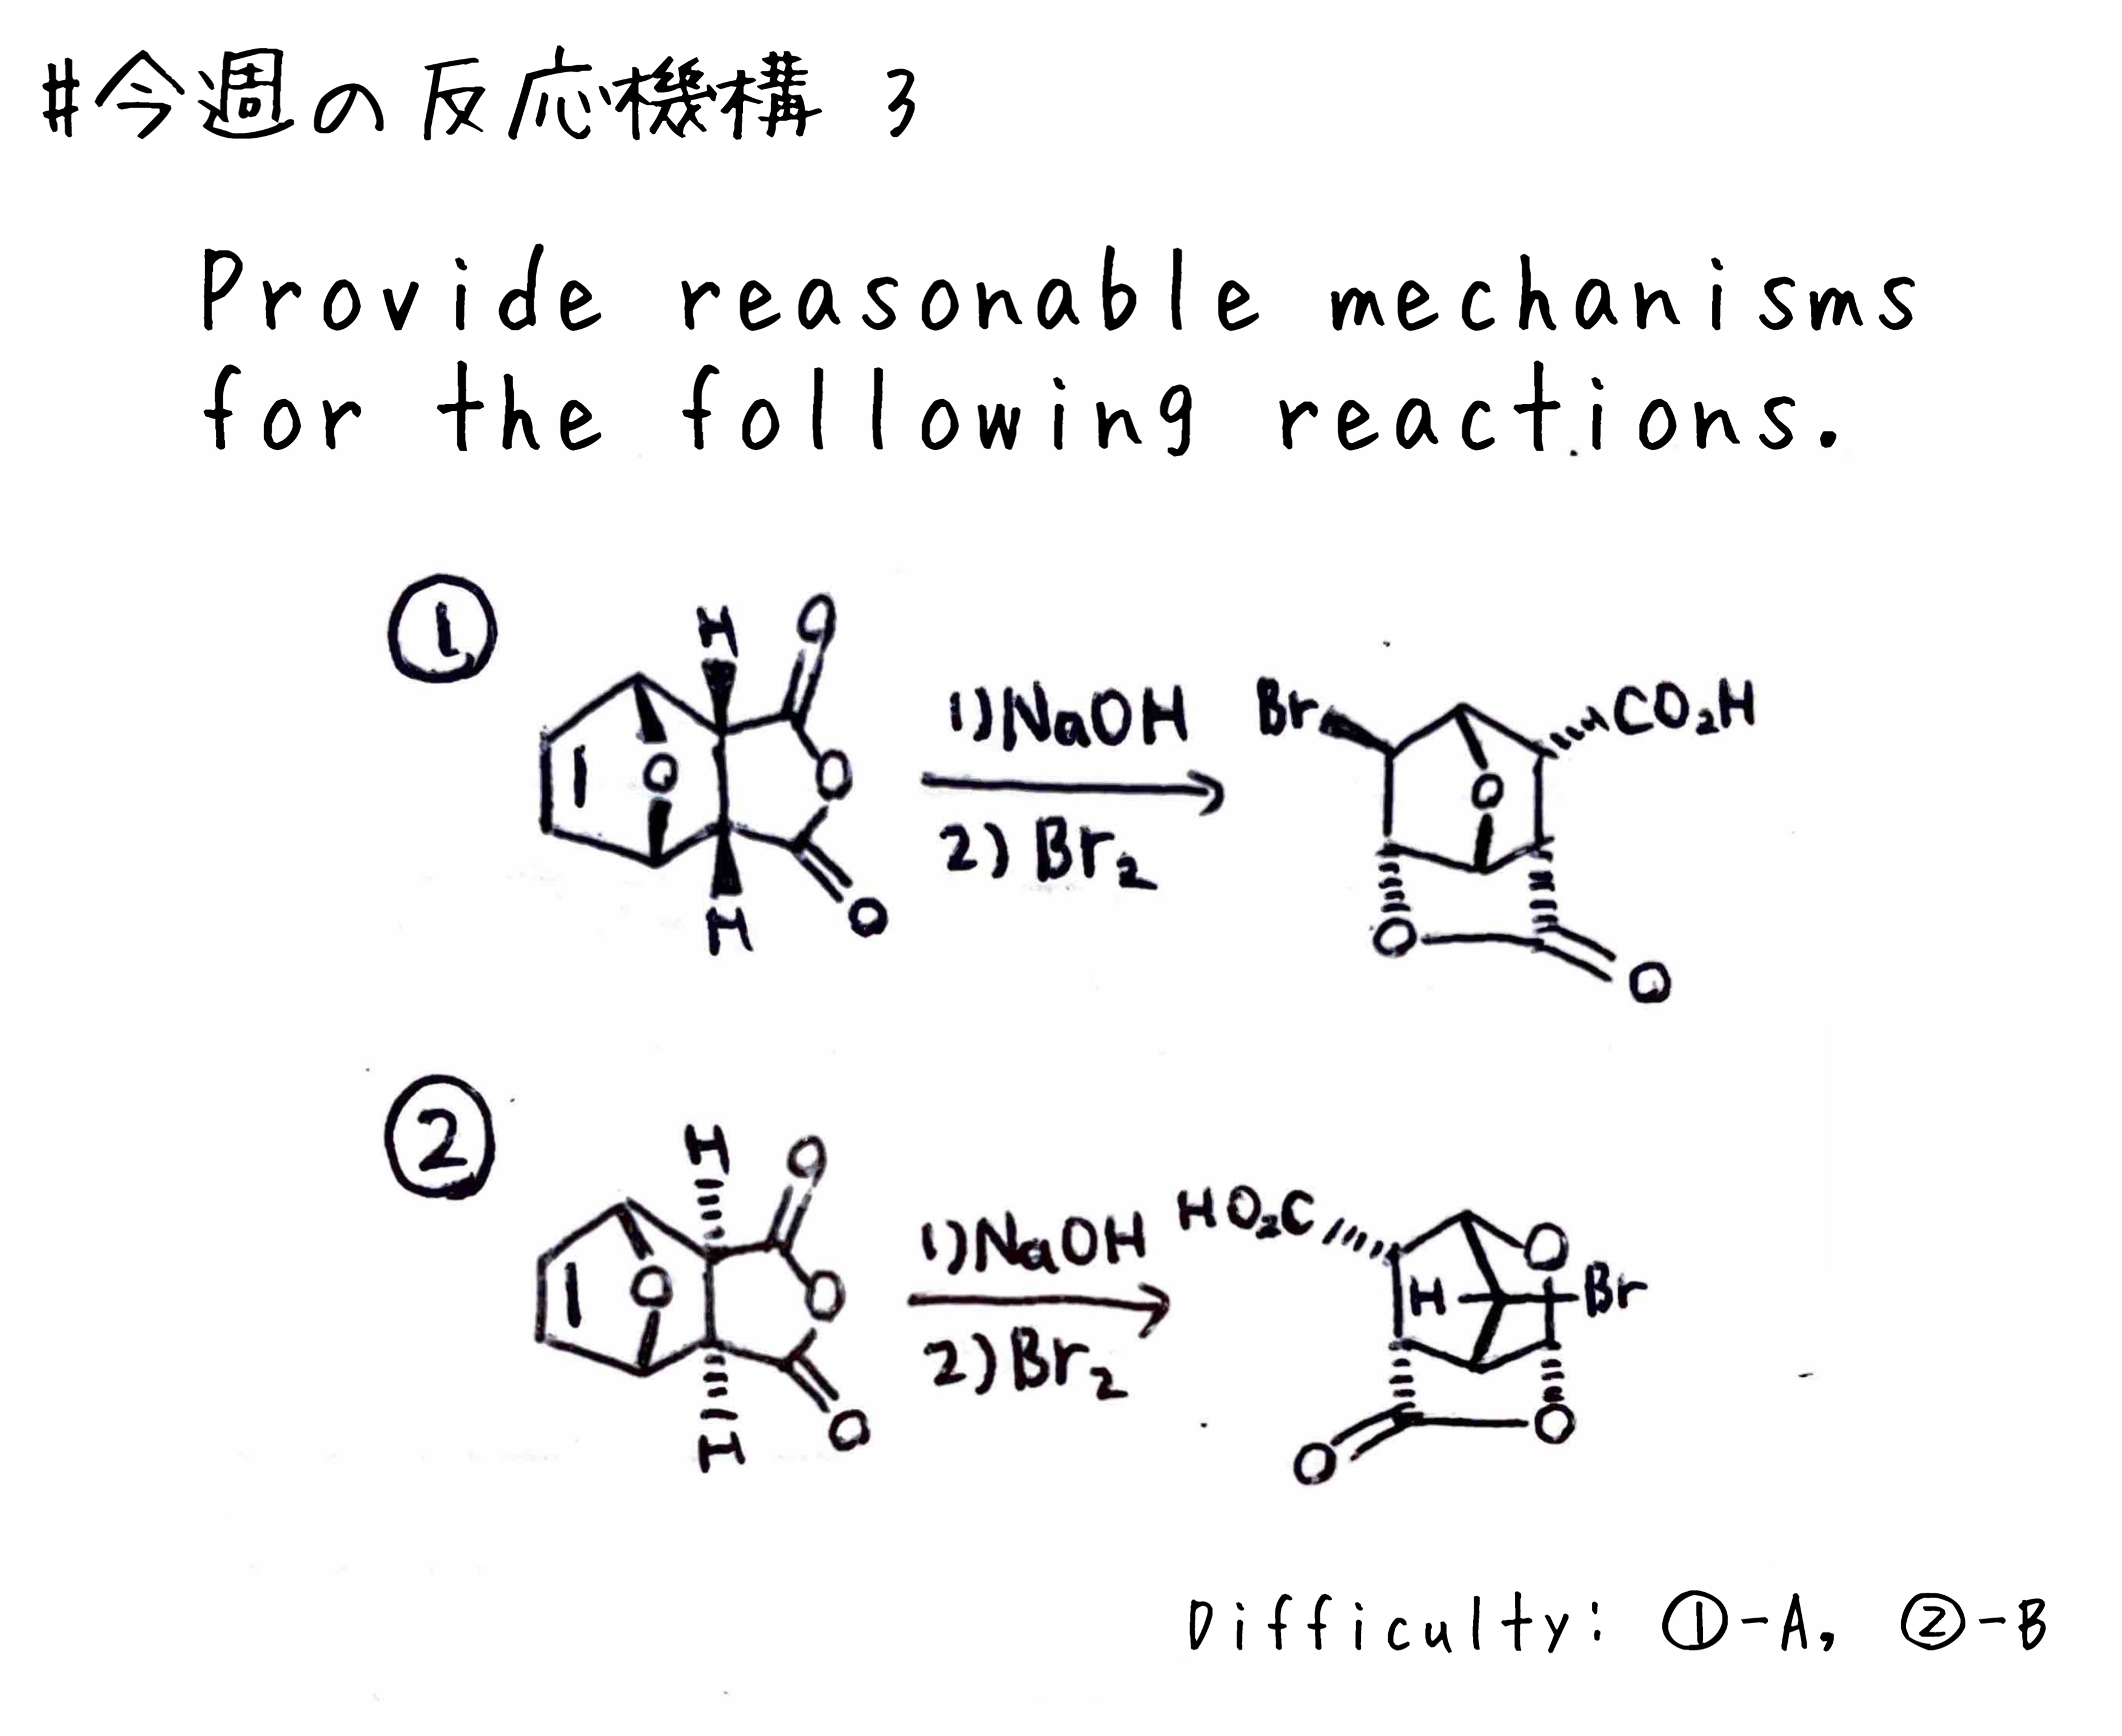 #今週の反応機構 3
Provide reasonable mechanisms
for the following reactions.
①
H
O
O
O
O
H
1) NaOH
2) Br₂
Br
CO₂H
O
O
O
②
H
O
O
O
O
H
1) NaOH
2) Br₂
HO₂C
O
H
Br
O
O
Difficulty: ①-A, ②-B